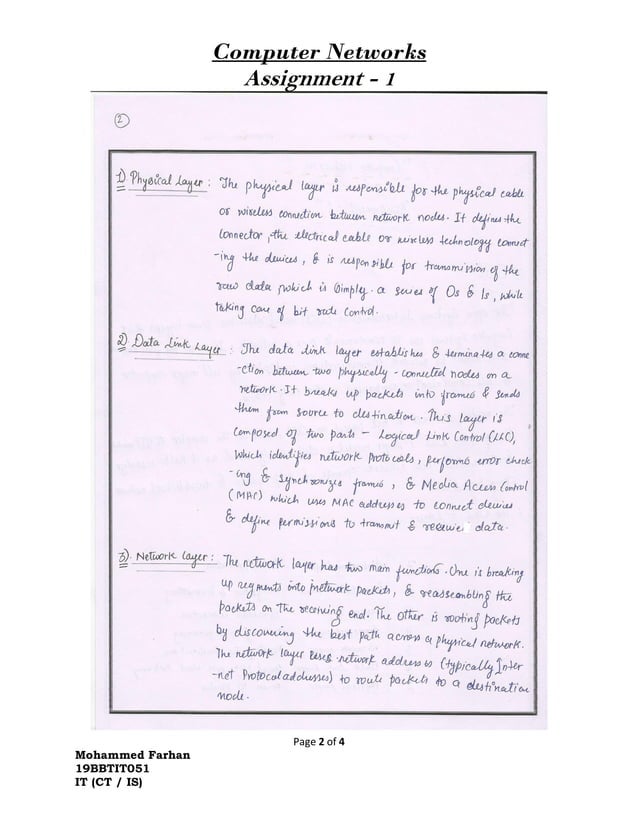 Computer Networks
Assignment - 1
2
1) Physical Layer : The physical layer is responsible for the physical cable
or wireless connection between network nodes. It defines the
Connector, the electrical cable or wireless technology connect
-ing the devices, & is responsible for transmission of the
raw data, which is simply a series of 0s & 1s, while
taking care of bit rate Control.
2) Data Link Layer : The data link layer establishes & terminates a conne
-ction between two physically - connected nodes on a
network. It breaks up packets into frames & sends
them from source to destination. This layer is
Composed of two parts - Logical Link Control (LLC),
which identifies network protocols, performs error check
-ing & synchronizes frames, & Media Access Control
(MAC) which uses MAC addresses to connect devices
& define permissions to transmit & receive data.
3). Network Layer : The network layer has two main functions. One is breaking
up segments into network packets, & reassembling the
packets on the receiving end. The other is routing packets
by discovering the best path across a physical network.
The network layer uses network addresses (typically Inter
-net Protocol addresses) to route packets to a destination
node.
Page 2 of 4
Mohammed Farhan
19BBTIT051
IT (CT / IS)